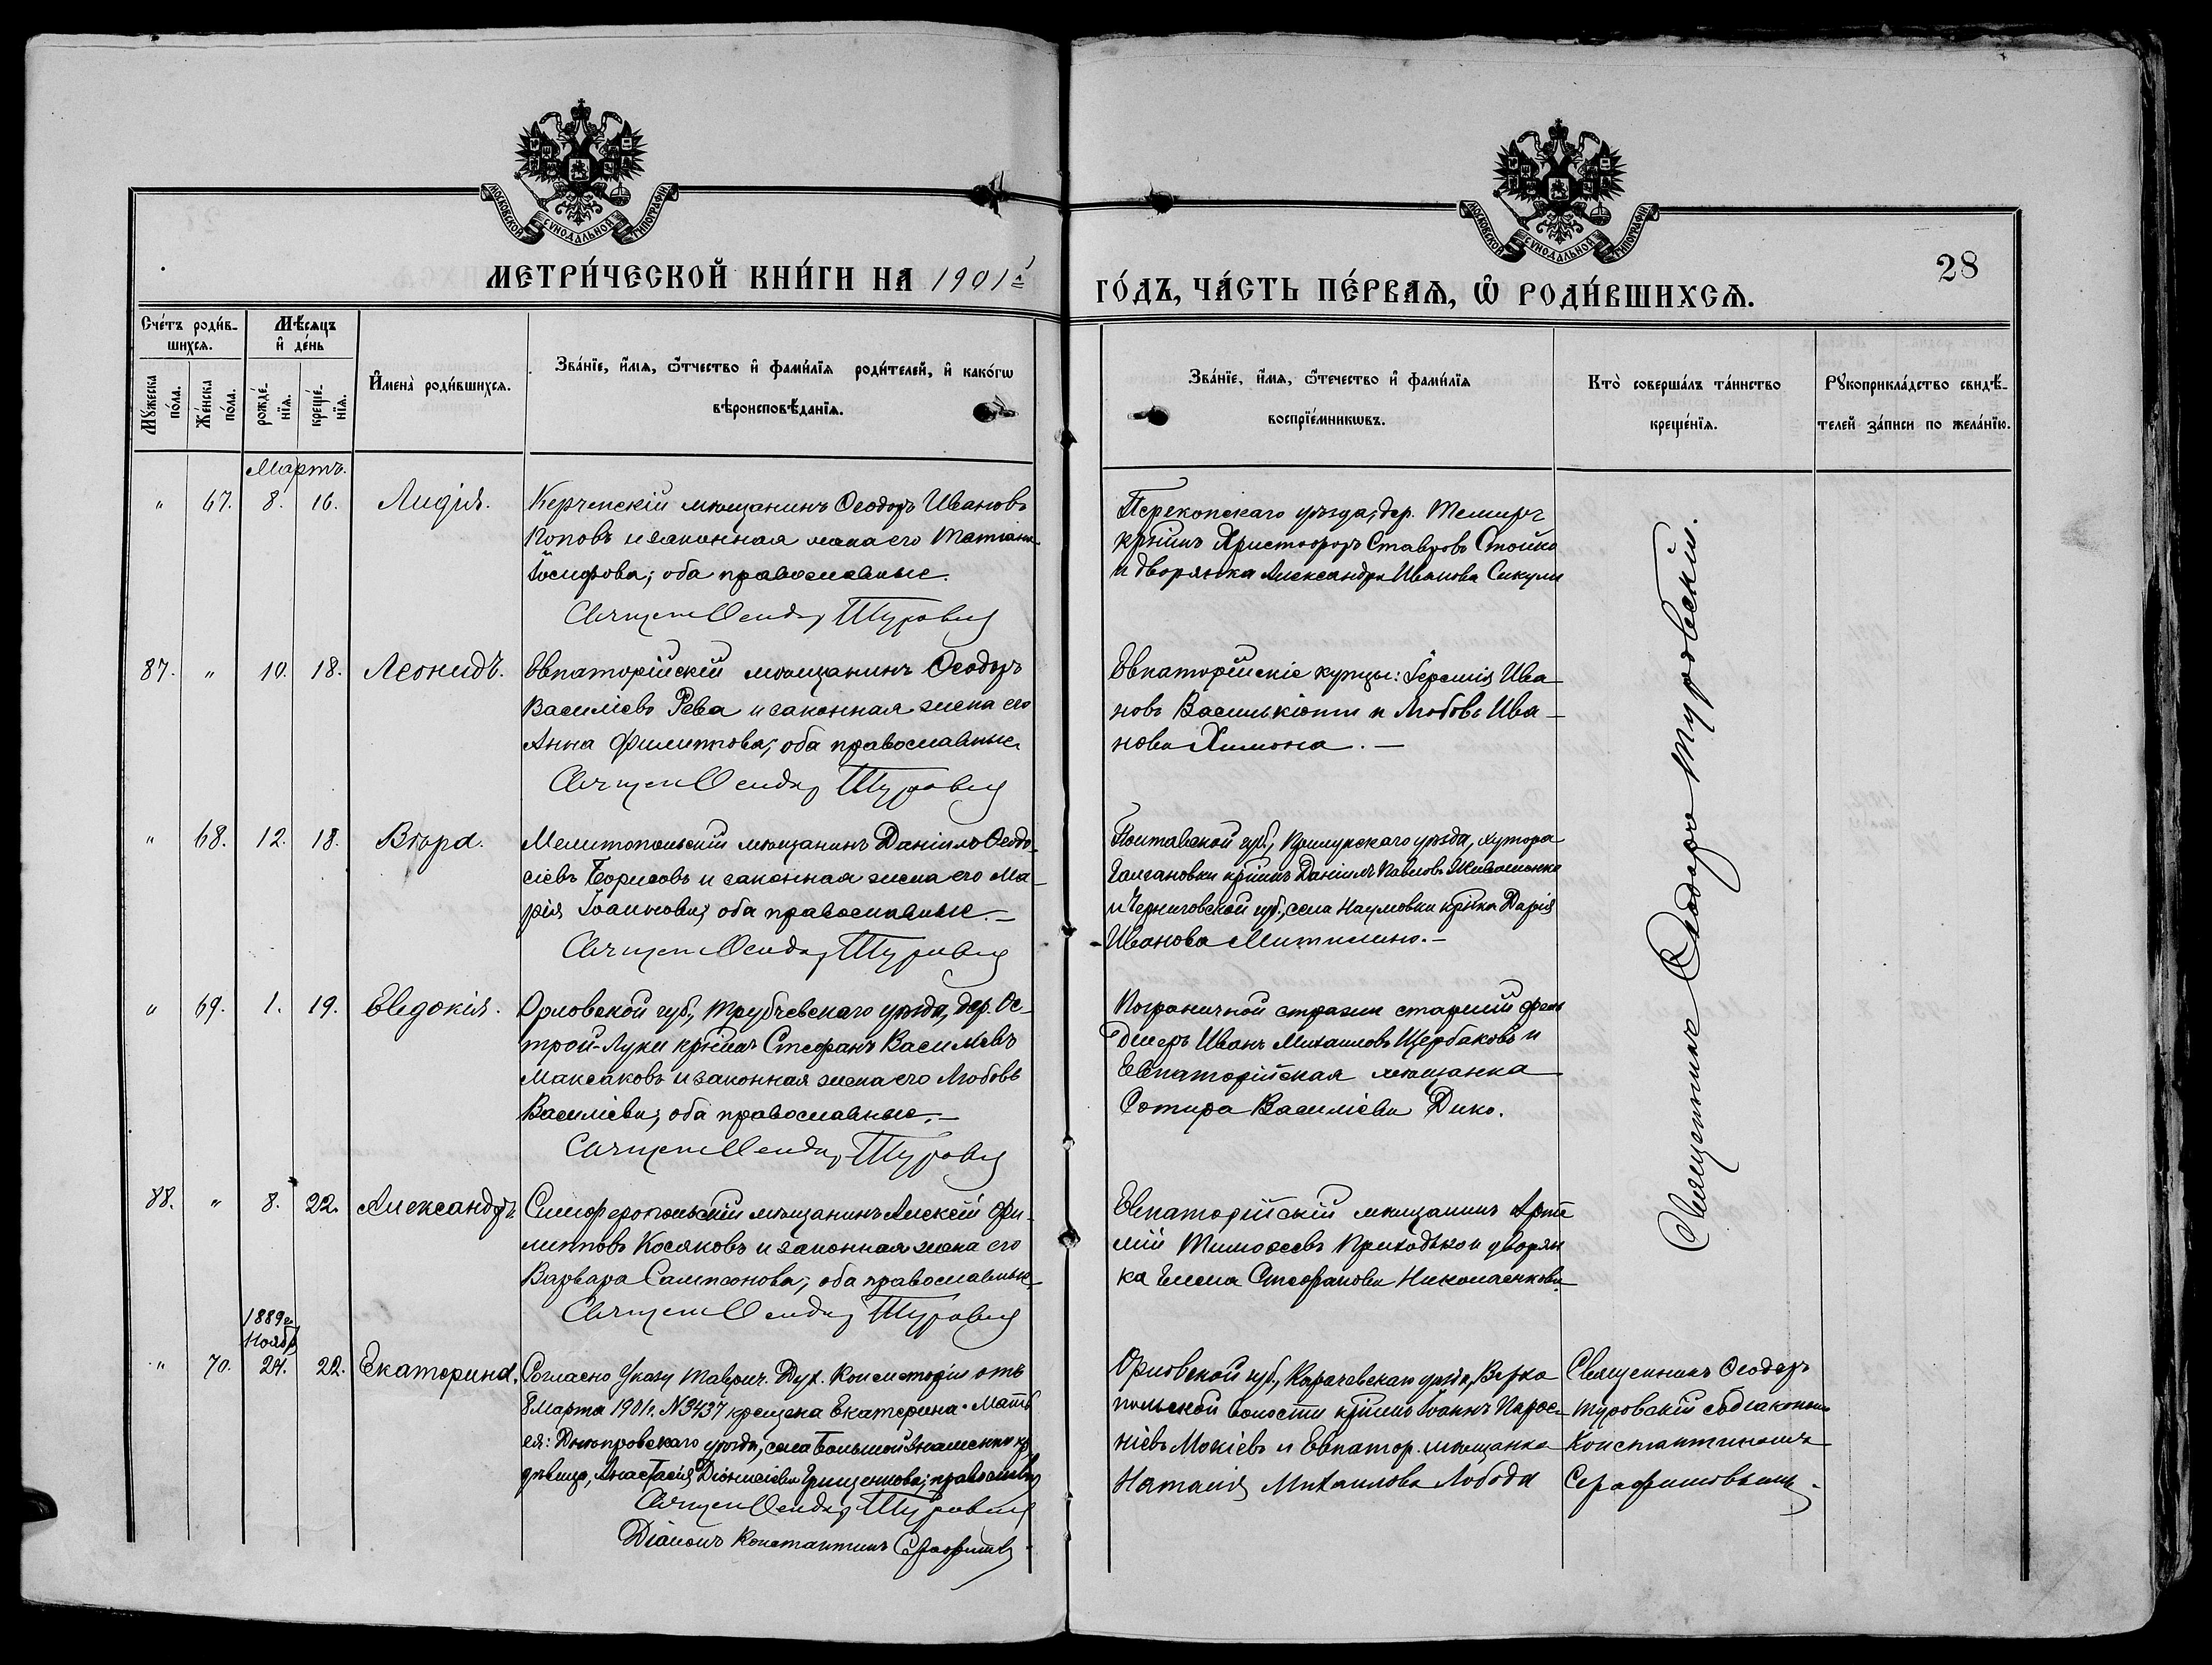 МОСКОВСКОЙ СѴНОДАЛЬНОЙ ТИПОГРАФІИ
МОСКОВСКОЙ СѴНОДАЛЬНОЙ ТИПОГРАФІИ
28
МЕТРИ́ЧЕСКОЙ КНИ́ГИ НА 1901й
ГО́ДЪ, ЧА́СТЬ ПЕ́РВАѦ, Ѡ҆ РОДИ́ВШИХСѦ.
Сче́тъ роди́в-
шихсѧ.
Мѣ́сѧцъ
и҆ де́нь
Мꙋ́жеска
по́ла.
Же́нска
по́ла.
рожде́-
нїѧ.
креще́-
нїѧ.
И҆мена̀ роди́вшихсѧ.
Зва́нїе, и҆́мѧ, ѻ҆́тчество и҆ фами́лїѧ роди́телей, и҆ како́гѡ
вѣроисповѣ́данїѧ.
Зва́нїе, и҆́мѧ, ѻ҆те́чество и҆ фами́лїѧ
воспрїе́мникѡвъ.
Кто̀ соверша́лъ та́инство
креще́нїѧ.
Рꙋкоприкла́дство свидѣ́-
телей за́писи по жела́нїю.
Мартъ.
" 67. 8. 16. Лидія.
Керченскій мѣщанинъ Ѳеодоръ Ивановъ
Поповъ и законная жена его Татіана
Іосифова; оба православные.
Священ Ѳеодор Туровскій
Перекопскаго уѣзда, дер. Темиръ
кр҃нинъ Христофоръ Ставровъ Стойко
и дворянка Александра Иванова Сикули
87. " 10. 18. Леонидъ.
Евпаторійскій мѣщанинъ Ѳеодоръ
Василіевъ Рева и законная жена его
Анна Филиппова; оба православные
Священ Ѳеодор Туровскій
Евпаторійскіе купцы: Іеремія Ива-
новъ Василькіоти и Любовь Ива-
нова Химона.—
" 68. 12. 18. Вѣра.
Мелитопольскій мѣщанинъ Даніилъ Ѳеодо-
сіевъ Борисовъ и законная жена его Ма-
рія Іоаннова; оба православные.—
Священ Ѳеодор Туровскій
Полтавской губ., Прилукскаго уѣзда, хутора
кр҃нинъ Даніилъ Павловъ
и Черниговской губ., села Наумовки кр҃нка Дарія
Иванова
" 69. 1. 19. Евдокія.
Орловской губ., Трубчевскаго уѣзда, дер. Ос-
трой-Луки кр҃нинъ Стефанъ Василіевъ
Максаковъ и законная жена его Любовь
Василіева; оба православные.—
Священ Ѳеодор Туровскій
Пограничной стражи старшій фель
дшеръ Иванъ Михаиловъ Щербаковъ и
Евпаторійская мѣщанка
Сотира Василіева Дико.
88. " 8. 22. Александръ.
Симферопольскій мѣщанинъ Алексій Фи-
липповъ Косяковъ и законная жена его
Варвара Сампсонова; оба православные
Священ Ѳеодор Туровскій
Евпаторійскій мѣщанинъ Арте
мій Тимоѳеевъ Приходько и дворян
ка Елена Стефанова Николаенкова
Священникъ Ѳеодоръ Туровскій.
1889 г.
Ноябр
" 70. 24. 22. Екатерина.
Согласно Указу Таврич. Дух. Консисторіи отъ
8 Марта 1901 г. №3437 крещена Екатерина. Мать
ея: Днѣпровскаго уѣзда, села Большой Знаменки кр
дѣвица, Анастасія Діонисіева Грищенкова; православ
Священ Ѳеодор Туровскій
Діаконъ Константинъ Серафимов
Орловской губ., Карачевскаго уѣзда, Верхо
польской волости кр҃нинъ Іоаннъ Парѳе-
ніевъ Мокіевъ и Евпатор. мѣщанка
Наталія Михаилова Лобода
Священникъ Ѳеодоръ
Туровскій съ діакономъ
Константиномъ
Серафимовымъ.